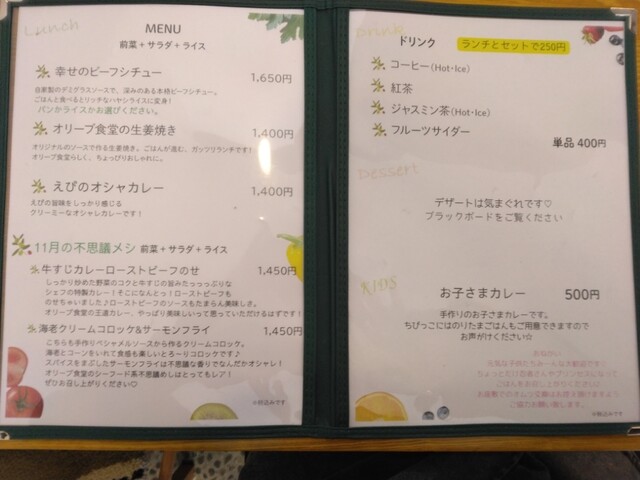 Lunch
MENU
前菜+サラダ+ライス
幸せのビーフシチュー 1,650円
自家製のデミグラスソースで、深みのある本格ビーフシチュー。
ごはんと食べるとリッチなハヤシライスに変身!
パンかライスかお選びください。
オリーブ食堂の生姜焼き 1,400円
オリジナルのソースで作る生姜焼き。ごはんが進む、ガッツリランチです!
オリーブ食堂らしく、ちょっぴりおしゃれに。
えびのオシャカレー 1,400円
えびの旨味をしっかり感じる
クリーミーなオシャレカレーです!
11月の不思議メシ 前菜+サラダ+ライス
牛すじカレーローストビーフのせ 1,450円
しっかり炒めた野菜のコクと牛すじの旨みたっっっぷりな
シェフの特製カレー!そこになんとっ!ローストビーフも
のせちゃいました♪ローストビーフのソースもたまらん美味しさ。
オリーブ食堂の王道カレー、やっぱり美味しいって思っていただけるはずです!
海老クリームコロッケ&サーモンフライ 1,450円
こちらも手作りベシャメルソースから作るクリームコロッケ。
海老とコーンをいれて食感も楽しいとろ〜りコロッケです♪
スパイスをまぶしたサーモンフライは不思議な香りでなんだかオシャレ!
オリーブ食堂のシーフード系不思議めしはとってもレア!
ぜひお召し上がりください♡
※税込みです。
Drink
ドリンク ランチとセットで250円
コーヒー(Hot・Ice)
紅茶
ジャスミン茶(Hot・Ice)
フルーツサイダー
単品 400円
Dessert
デザートは気まぐれです♡
ブラックボードをご覧ください
KIDS
お子さまカレー 500円
手作りのお子さまカレーです。
ちびっこにはのりたまごはんもご用意できますので
お声がけください☆
ご協力お願い致します。
※税込みです。